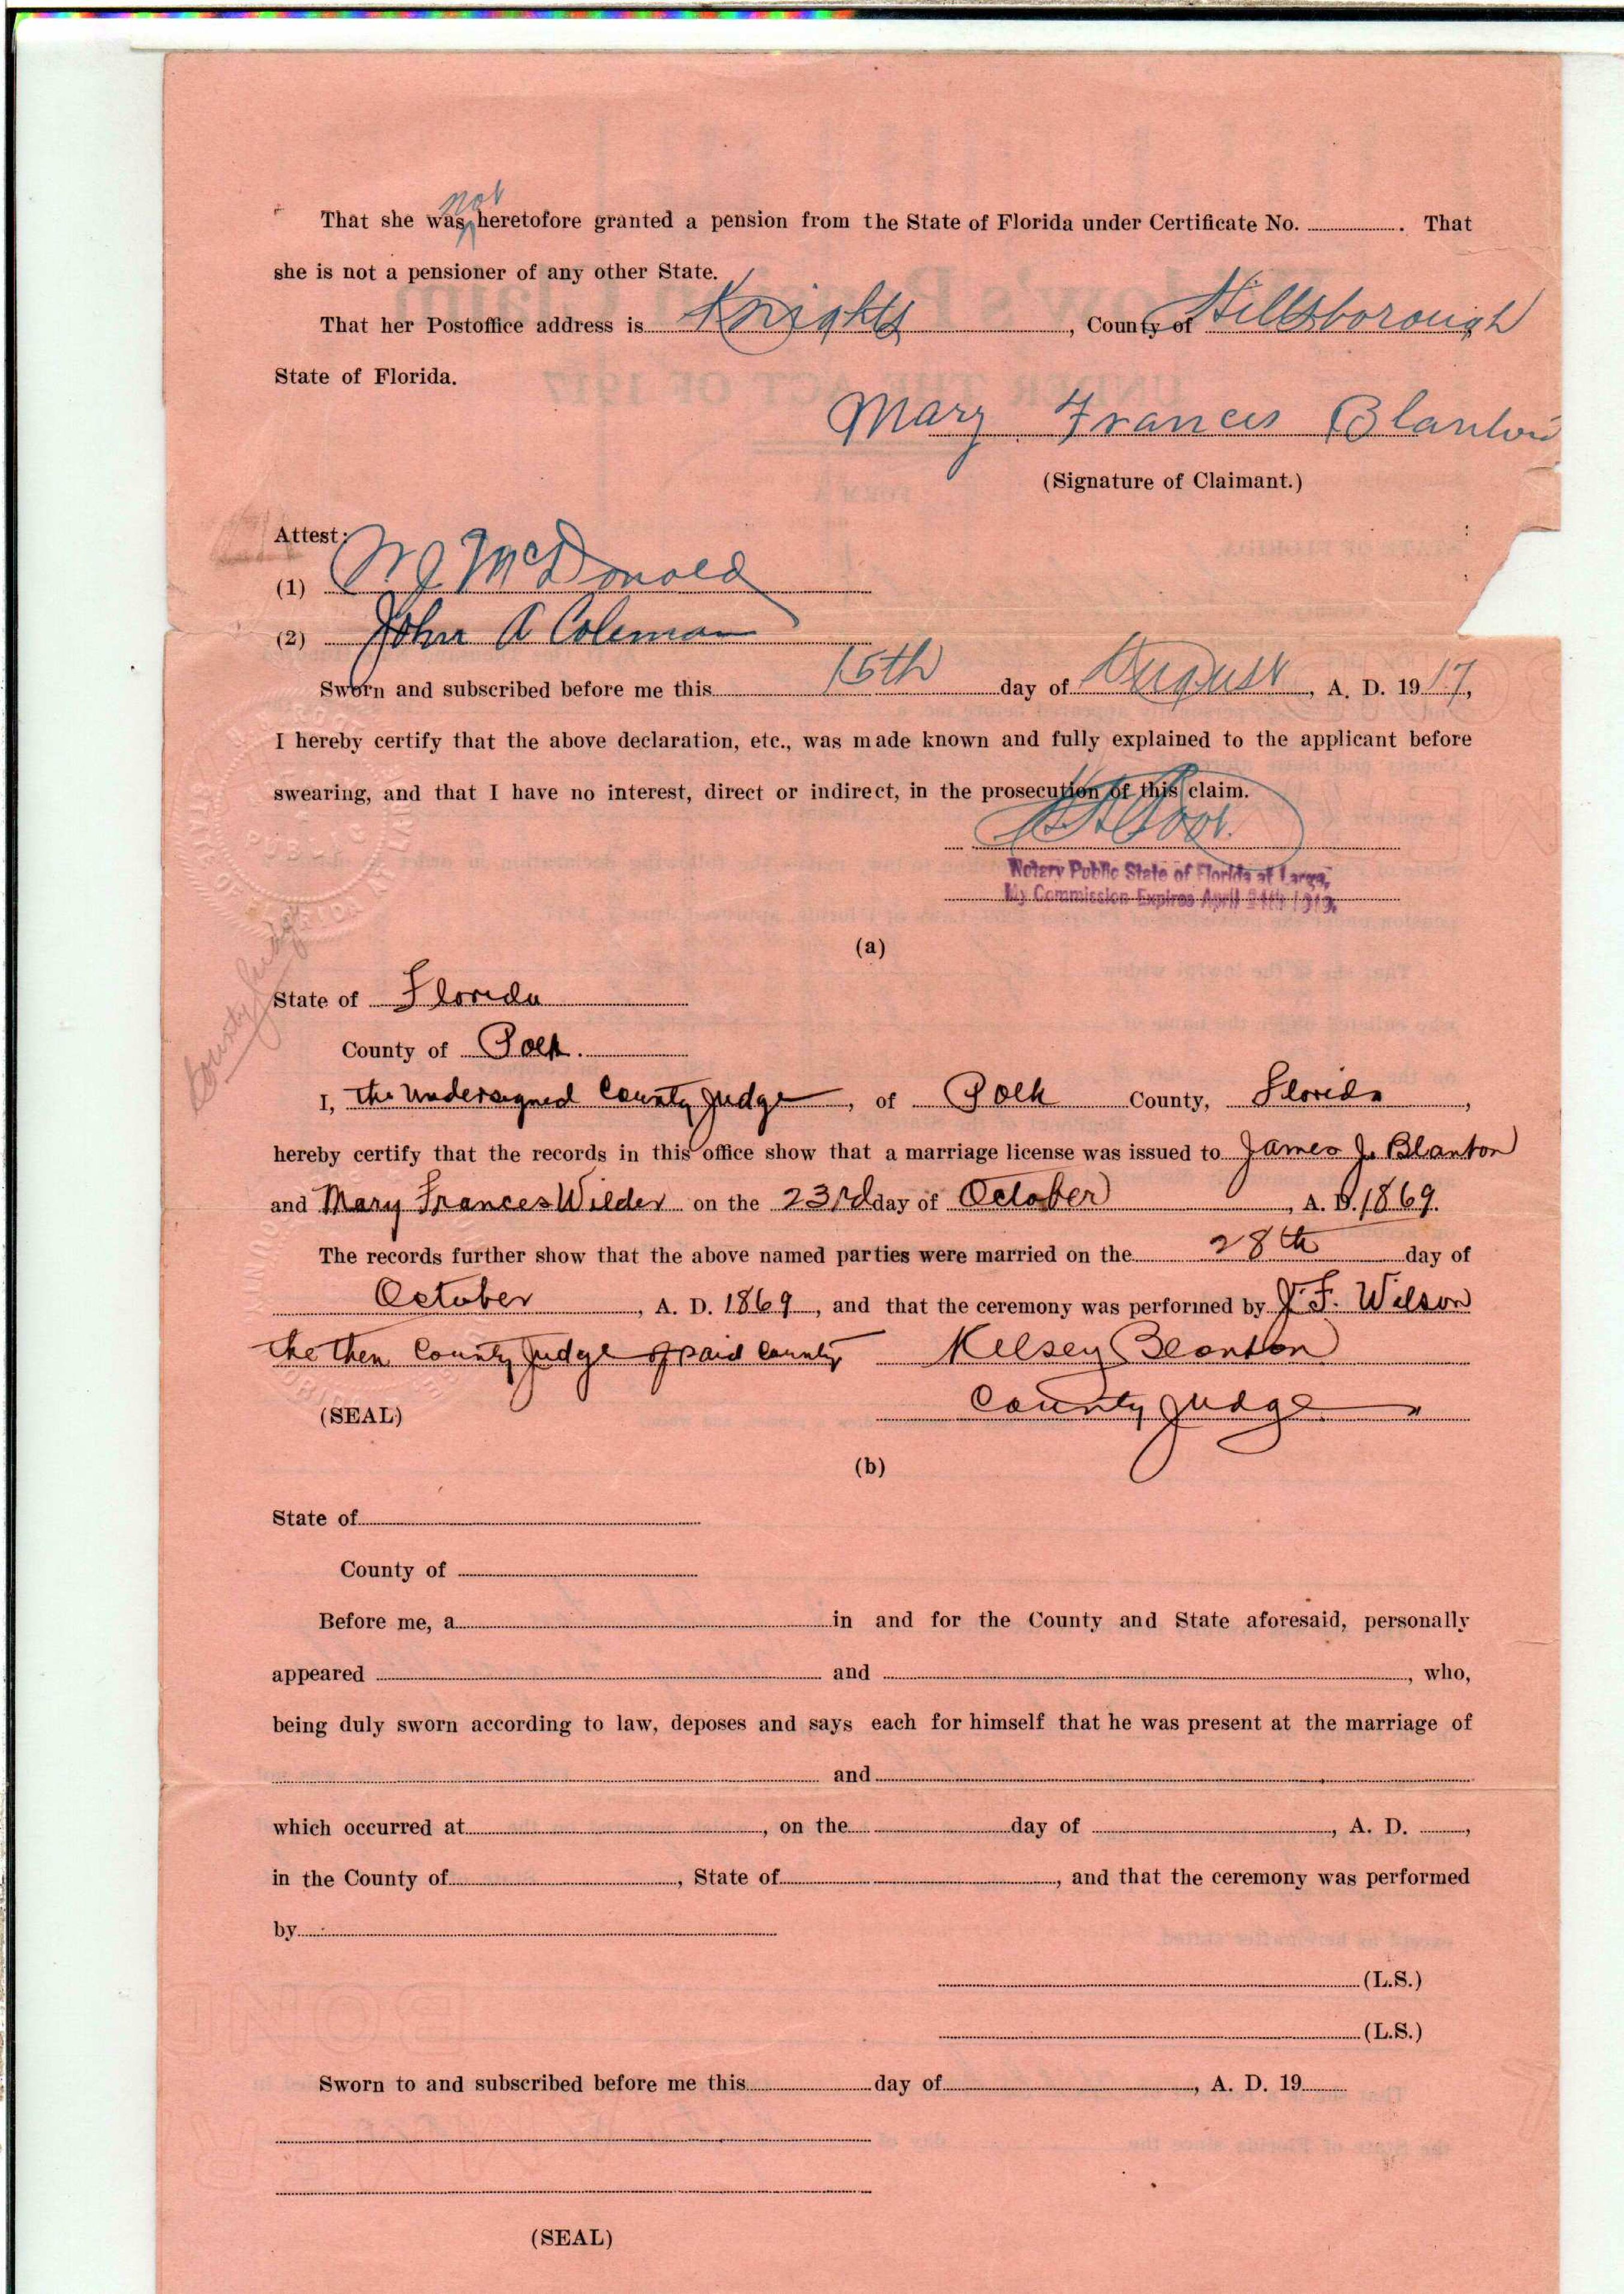 not
That she was heretofore granted a pension from the State of Florida under Certificate No. . That
she is not a pensioner of any other State.
That her Postoffice address is Knights, County of Hillsborough
State of Florida.
Mary Frances Blanton
(Signature of Claimant.)
Attest:
(1) McDonald
(2) John A Coleman
Sworn and subscribed before me this 15th day of August, A. D. 1917,
I hereby certify that the above declaration, etc., was made known and fully explained to the applicant before
swearing, and that I have no interest, direct or indirect, in the prosecution of this claim.
Notary Public State of Florida at Large,
My Commission Expires April 24th 1919.
(a)
State of Florida
County of Polk.
County Judge
I, the undersigned County Judge, of Polk County, Florida,
hereby certify that the records in this office show that a marriage license was issued to James J. Blanton
and Mary Frances Wilder on the 23rd day of October, A. D. 1869.
The records further show that the above named parties were married on the 28th day of
October, A. D. 1869, and that the ceremony was performed by J. F. Wilson
the then County Judge of said County Kelsey Blanton
County Judge
(SEAL)
(b)
State of
County of
Before me, a in and for the County and State aforesaid, personally
appeared and , who,
being duly sworn according to law, deposes and says each for himself that he was present at the marriage of
and
which occurred at , on the day of , A. D. ,
in the County of , State of , and that the ceremony was performed
by
(L.S.)
(L.S.)
Sworn to and subscribed before me this day of , A. D. 19
(SEAL)